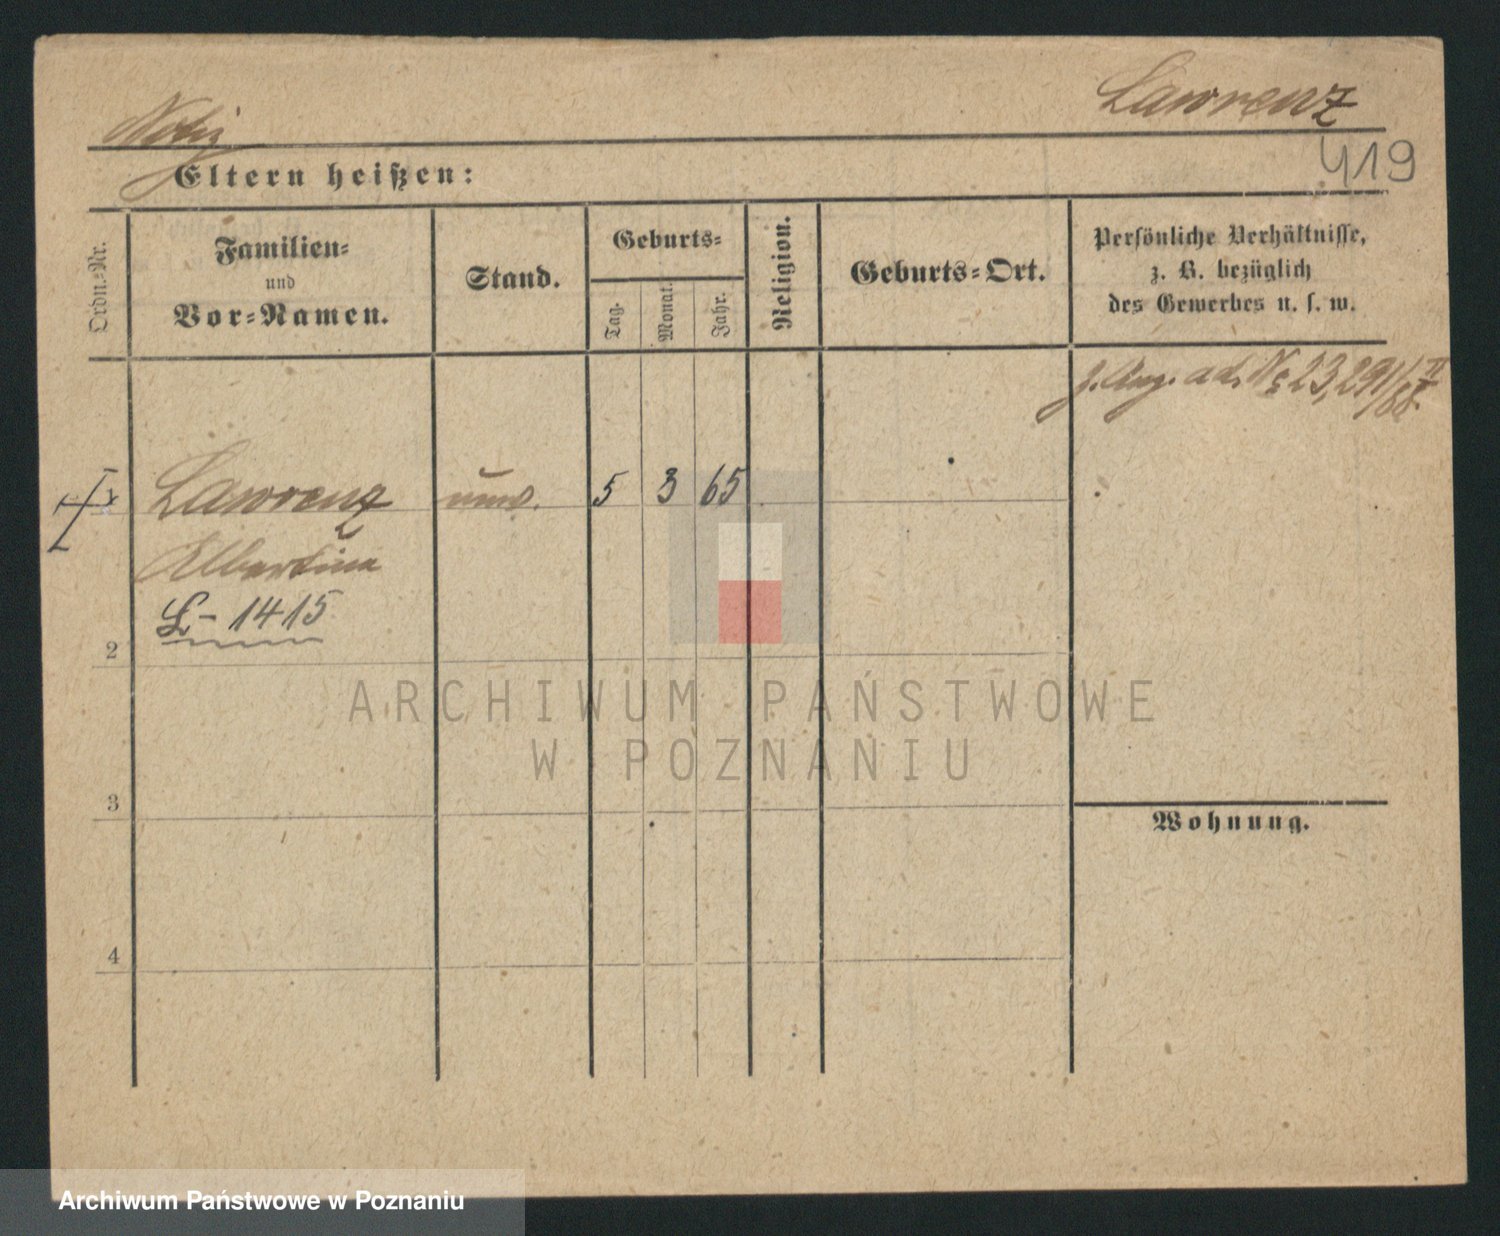 Lawrenz
Notiz
419
Eltern heißen:
Ordn.-Nr.
Familien-
und
Vor-Namen.
Stand.
Geburts-
Tag.
Monat.
Jahr.
Religion.
Geburts-Ort.
Persönliche Verhältnisse,
z. B. bezüglich
des Gewerbes u. s. w.
z. Ang. ad. No 23,291/88 II
Lawrenz unv. 5 3 65
Albertine
L-1415
2
3
4
Wohnung.
ARCHIWUM PAŃSTWOWE
W POZNANIU
Archiwum Państwowe w Poznaniu